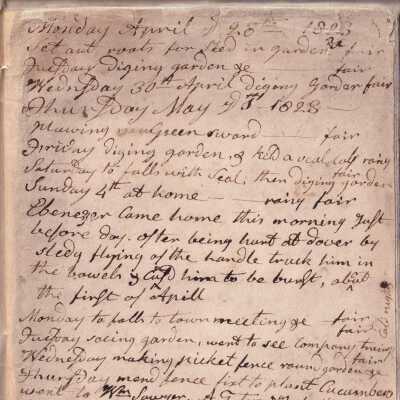 Monday April ye 28th 1823
Set out roots for seed in garden fair
Tuesday diging garden &c fair
Wednesday 30th April diging Garden fair
Thursday May ye 1st 1823
plawing green sward fair
Friday diging garden, & kild a veal calf rainy
Saturday to falls with veal; then diging garden fair
Sunday 4th at home rainy fair
Ebenezer came home this morning Just
before day. after being hurt at dover by
sledg flying of the handle truck him in
the bowels & causd him to be burst, about
the first of apill
Monday to falls to town meeting &c fair
Tuesday soing garden, went to see company train fair
Wednesday making picket fence round garden &c fair
Thursday mend fence first to plant Cucumbers
went to Wm Sawyer